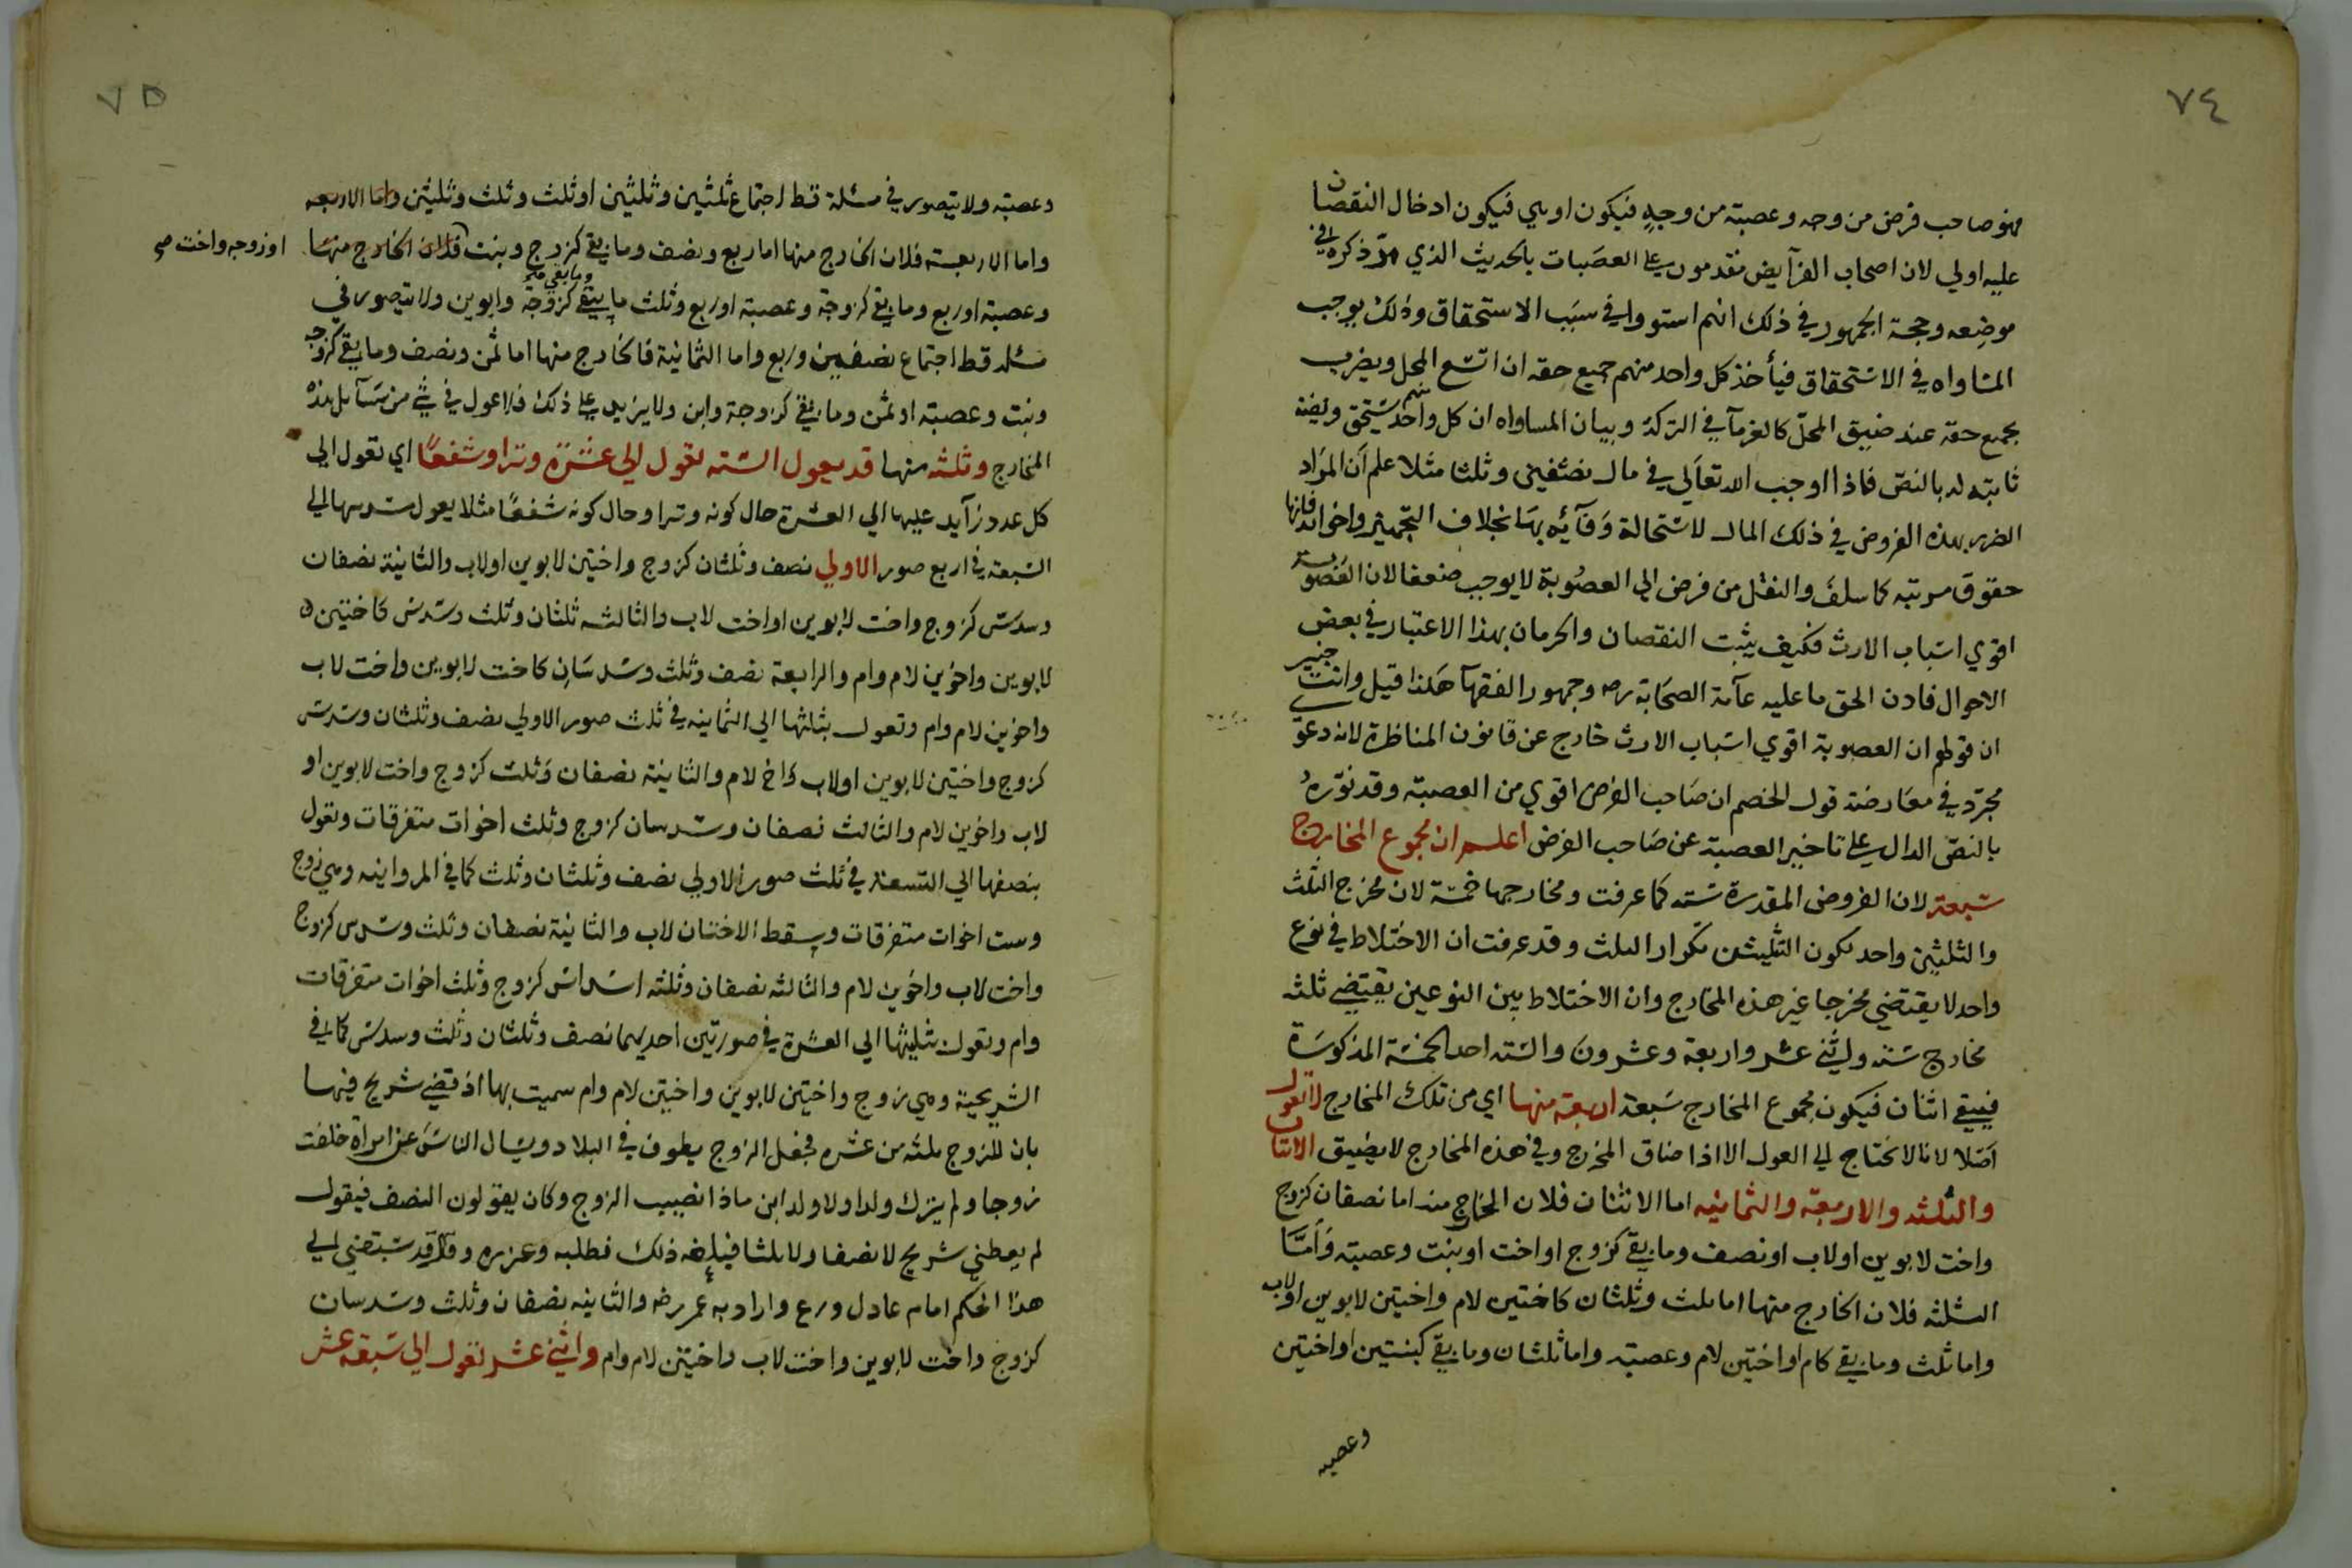 ٧٤
فهو صاحب فرض من وجه وعصبة من وجه فيكون اوهي فيكون ادخال النقصان
عليه اولي لان اصحاب الفرآيض مقدمون علي العصبات بالحديث الذي مر ذكره في
موضعه وحجة الجمهور في ذلك انهم استووا في سبب الاستحقاق وذلك يوجب
المساواه في الاستحقاق فيأخذ كل واحد منهم جميع حقه ان اتسع المحل ويضرب
بجميع حقه عند ضيق المحل كالغرمآ في التركة وبيان المساواه ان كل واحد منهم يستحق
ثابته له بالنص فاذا اوجب الله تعالي في مال نصفين وثلثا مثلا علم ان المراد
الضرب بهذه الفروض في ذلك المال لاستحالة وفآئه بها بخلاف التجهيز واخواته فانها
حقوق مرتبه كما سلف والنقل من فرض الي العصوبة لا يوجب ضعفا لان العصوبة
اقوي اسباب الارث فكيف يثبت النقصان والحرمان بهذا الاعتبار في بعض
الاحوال فاذن الحق ما عليه عآمة الصحابة رضه وجمهور الفقهآ هكذا قيل وانت خبير
ان قولهم ان العصوبة اقوي اسباب الارث خارج عن قانون المناظرة لانه دعوي
مجرد في معارضة قول الخصم ان صاحب الفرض اقوي من العصبة وقد نوره
بالنص الدال علي تاخير العصبة عن صاحب الفرض اعلم ان مجموع المخارج
سبعة لان الفروض المقدرة سته كما عرفت ومخارجها خمسة لان مخرج الثلث
والثلثين واحد لكون الثلثين تكرار الثلث وقد عرفت ان الاختلاط في نوع
واحد لا يقتضي مخرجا غير هذه المخارج وان الاختلاط بين النوعين يقتضي ثلثه
مخارج سته واثني عشر واربعة وعشرون والسته احد الخمسة المذكورة
فيبقي اثنان فيكون مجموع المخارج سبعة اربعة منها اي من تلك المخارج لا تعول
اصلا لانا لا نحتاج الي العول الا اذا ضاق المخرج وفي هذه المخارج لا يضيق الاثنان
والثلثه والاربعة والثمانيه اما الاثنان فلان الخارج منه اما نصفان كزوج
واخت لابوين او لاب او نصف وما بقي كزوج او اخت او بنت وعصبة واما
الثلثه فلان الخارج منها اما ثلث وثلثان كاختين لام واختين لابوين او لاب
واما ثلث وما بقي كام او اختين لام وعصبه واما ثلثان وما بقي كبنتين او اختين
وعصبه
٧٥
وعصبته ولا يتصور في مسئلة قط اجتماع ثلثين وثلثين او ثلث وثلث وثلثين واما الاربعه
واما الاربعة فلان الخارج منها اما ربع ونصف وما بقي كزوج وبنت فلان الخارج منها
او زوجه واخت صح
وعصبة او ربع وما بقي كزوجة وعصبة او ربع وثلث ما يبقي وما بقي كزوجة وابوين ولا يتصور في
مسئله قط اجتماع نصفين وربع واما الثمانية فالخارج منها اما ثمن ونصف وما بقي كزوجه
وبنت وعصبة او ثمن وما بقي كزوجة وابن ولا يزيد علي ذلك فلا عول في شئ من مسآئل هذه
المخارج وثلثه منها قد يعول السته تعول الي عشرة وترا وشفعا اي تعول الي
كل عدد زآيد عليها الي العشرة حال كونه وترا وحال كونه شفعا مثلا يعول سدسها الي
السبعة في اربع صور الاولي نصف وثلثان كزوج واختين لابوين او لاب والثانية نصفان
وسدس كزوج واخت لابوين او اخت لاب والثالثه ثلثان وثلث وسدس كاختين
لابوين واخوين لام وام والرابعة نصف وثلث وسدسان كاخت لابوين واخت لاب
واخوين لام وام وتعول بثلثها الي الثمانيه في ثلث صور الاولي نصف وثلثان وسدس
كزوج واختين لابوين او لاب واخ لام والثانية نصفان وثلث كزوج واخت لابوين او
لاب واخوين لام والثالث نصفان وسدسان كزوج وثلث اخوات متفرقات وتعول
بنصفها الي التسعة في ثلث صور الاولي نصف وثلثان وثلث كما في المروانيه وهي زوج
وست اخوات متفرقات ويسقط الاختان لاب والثانية نصفان وثلث وسدس كزوج
واخت لاب واخوين لام والثالثه نصفان وثلثه اسداس كزوج وثلث اخوات متفرقات
وام وتعول بثلثيها الي العشرة في صورتين احديهما نصف وثلثان وثلث وسدس كما في
الشريحية وهي زوج واختين لابوين واختين لام وام سميت بها اذ قضي شريح فيها
بان للزوج ثلثه من عشره فجعل الزوج يطوف في البلاد ويسال الناس عن امراة خلفت
زوجا ولم يترك ولدا ولا ولد ابن ماذا نصيب الزوج وكان يقولون النصف فيقول
لم يعطني شريح لا نصفا ولا ثلثا فبلغه ذلك فطلبه وعزره وقال قد سبقني الي
هذا الحكم امام عادل ورع واراد به عمر رضه والثانيه نصفان وثلث وسدسان
كزوج واخت لابوين واخت لاب واختين لام وام واثني عشر تعول الي سبعة عشر